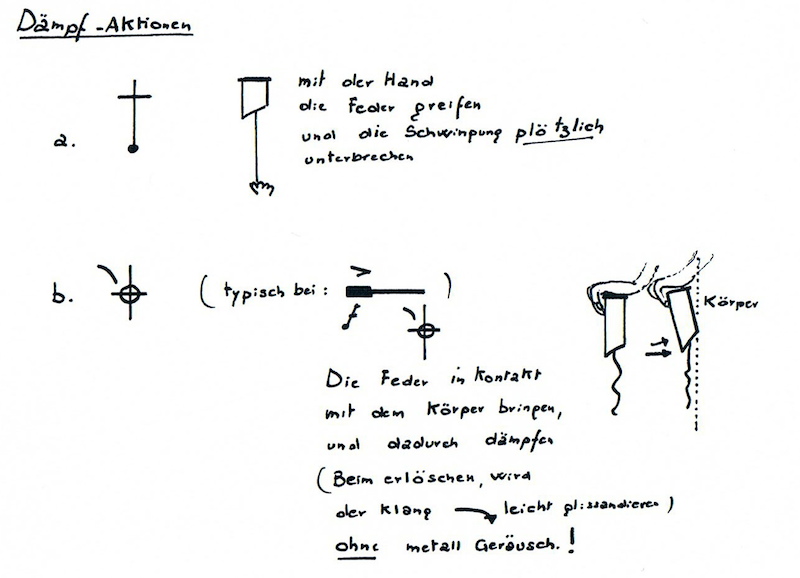 Dämpf-Aktionen
a.
mit der Hand
die Feder greifen
und die Schwingung plötzlich
unterbrechen
b.
(typisch bei: )
Körper
Die Feder in Kontakt
mit dem Körper bringen,
und dadurch dämpfen
(Beim erlöschen, wird
der Klang leicht glissandieren)
ohne metall Geräusch.!